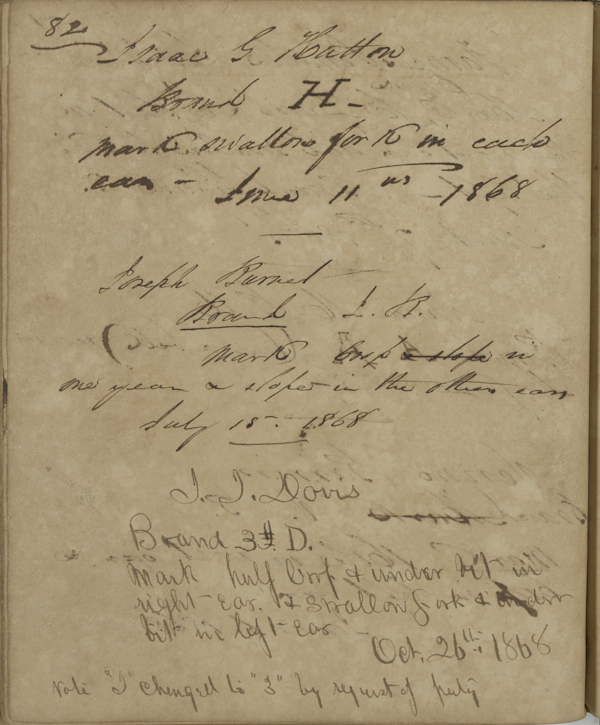 82
Isaac G Hatton
Brand H -
mark swallow fork in each
ear - June 11th - 1868
Joseph Burnet
Brand J. B.
mark crop a slope in
one year a slope in the other ear
July 15. 1868
J. J. Davis
Brand 3 D.
Mark half Crop & under bit in
right Ear. & Swallow fork & under
bit in left Ear
Oct. 26th 1868
Note "J" changed to "3" by request of party